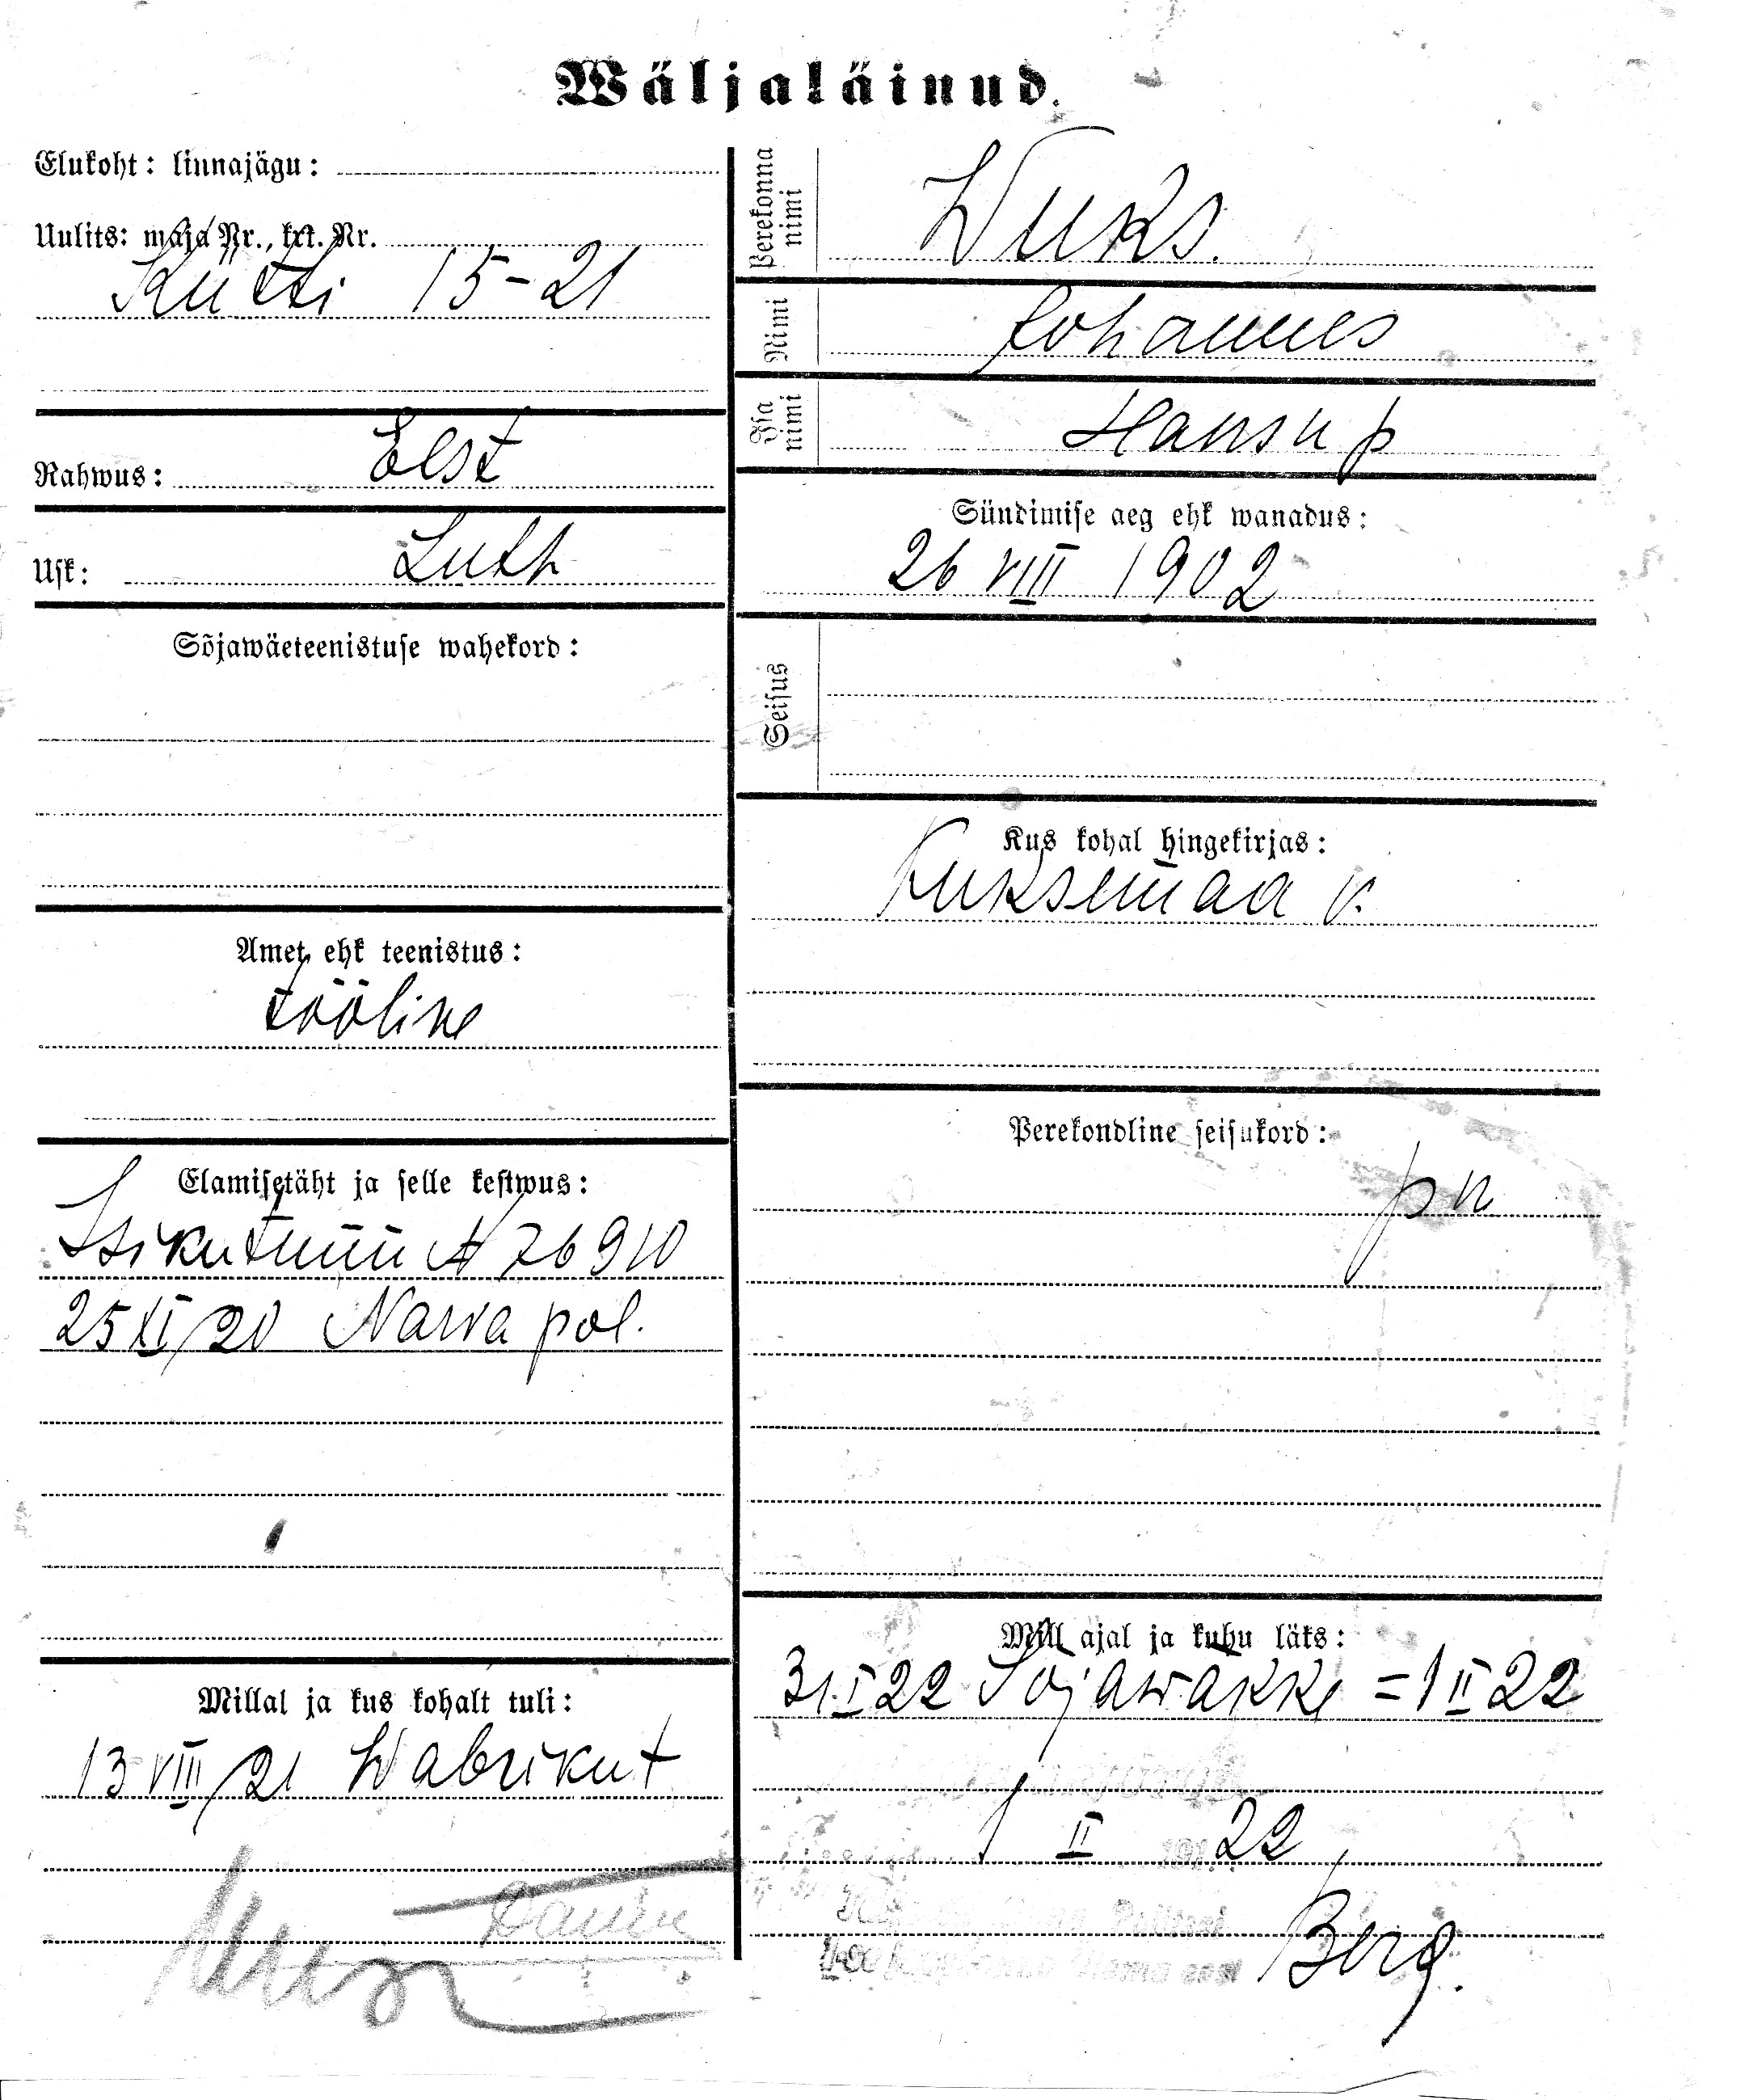 Wäljaläinud.
Elukoht: linnajägu:
Uulits: maja Nr., krt. Nr.
Kütti 15-21
Rahwus: Eest
Usk: Luth
Sõjawäeteenistuse wahekord:
Amet ehk teenistus:
tööline
Elamisetäht ja selle kestwus:
Isikutunn A 76910
25 XI/20 Narva pol.
Millal ja kus kohalt tuli:
13 VIII/21 Wabrikut
Perekonna nimi
Wuks.
Nimi
Johannes
Isa nimi
Hansu p
Sündimise aeg ehk wanadus:
26 VIII 1902
Seisus
Kus kohal hingekirjas:
Kuksemaa v.
Perekondline seisukord:
pn
Mill ajal ja kuhu läks:
31.I 22 Sõjawäkke = 1 II 22
1 II 22
Berg.